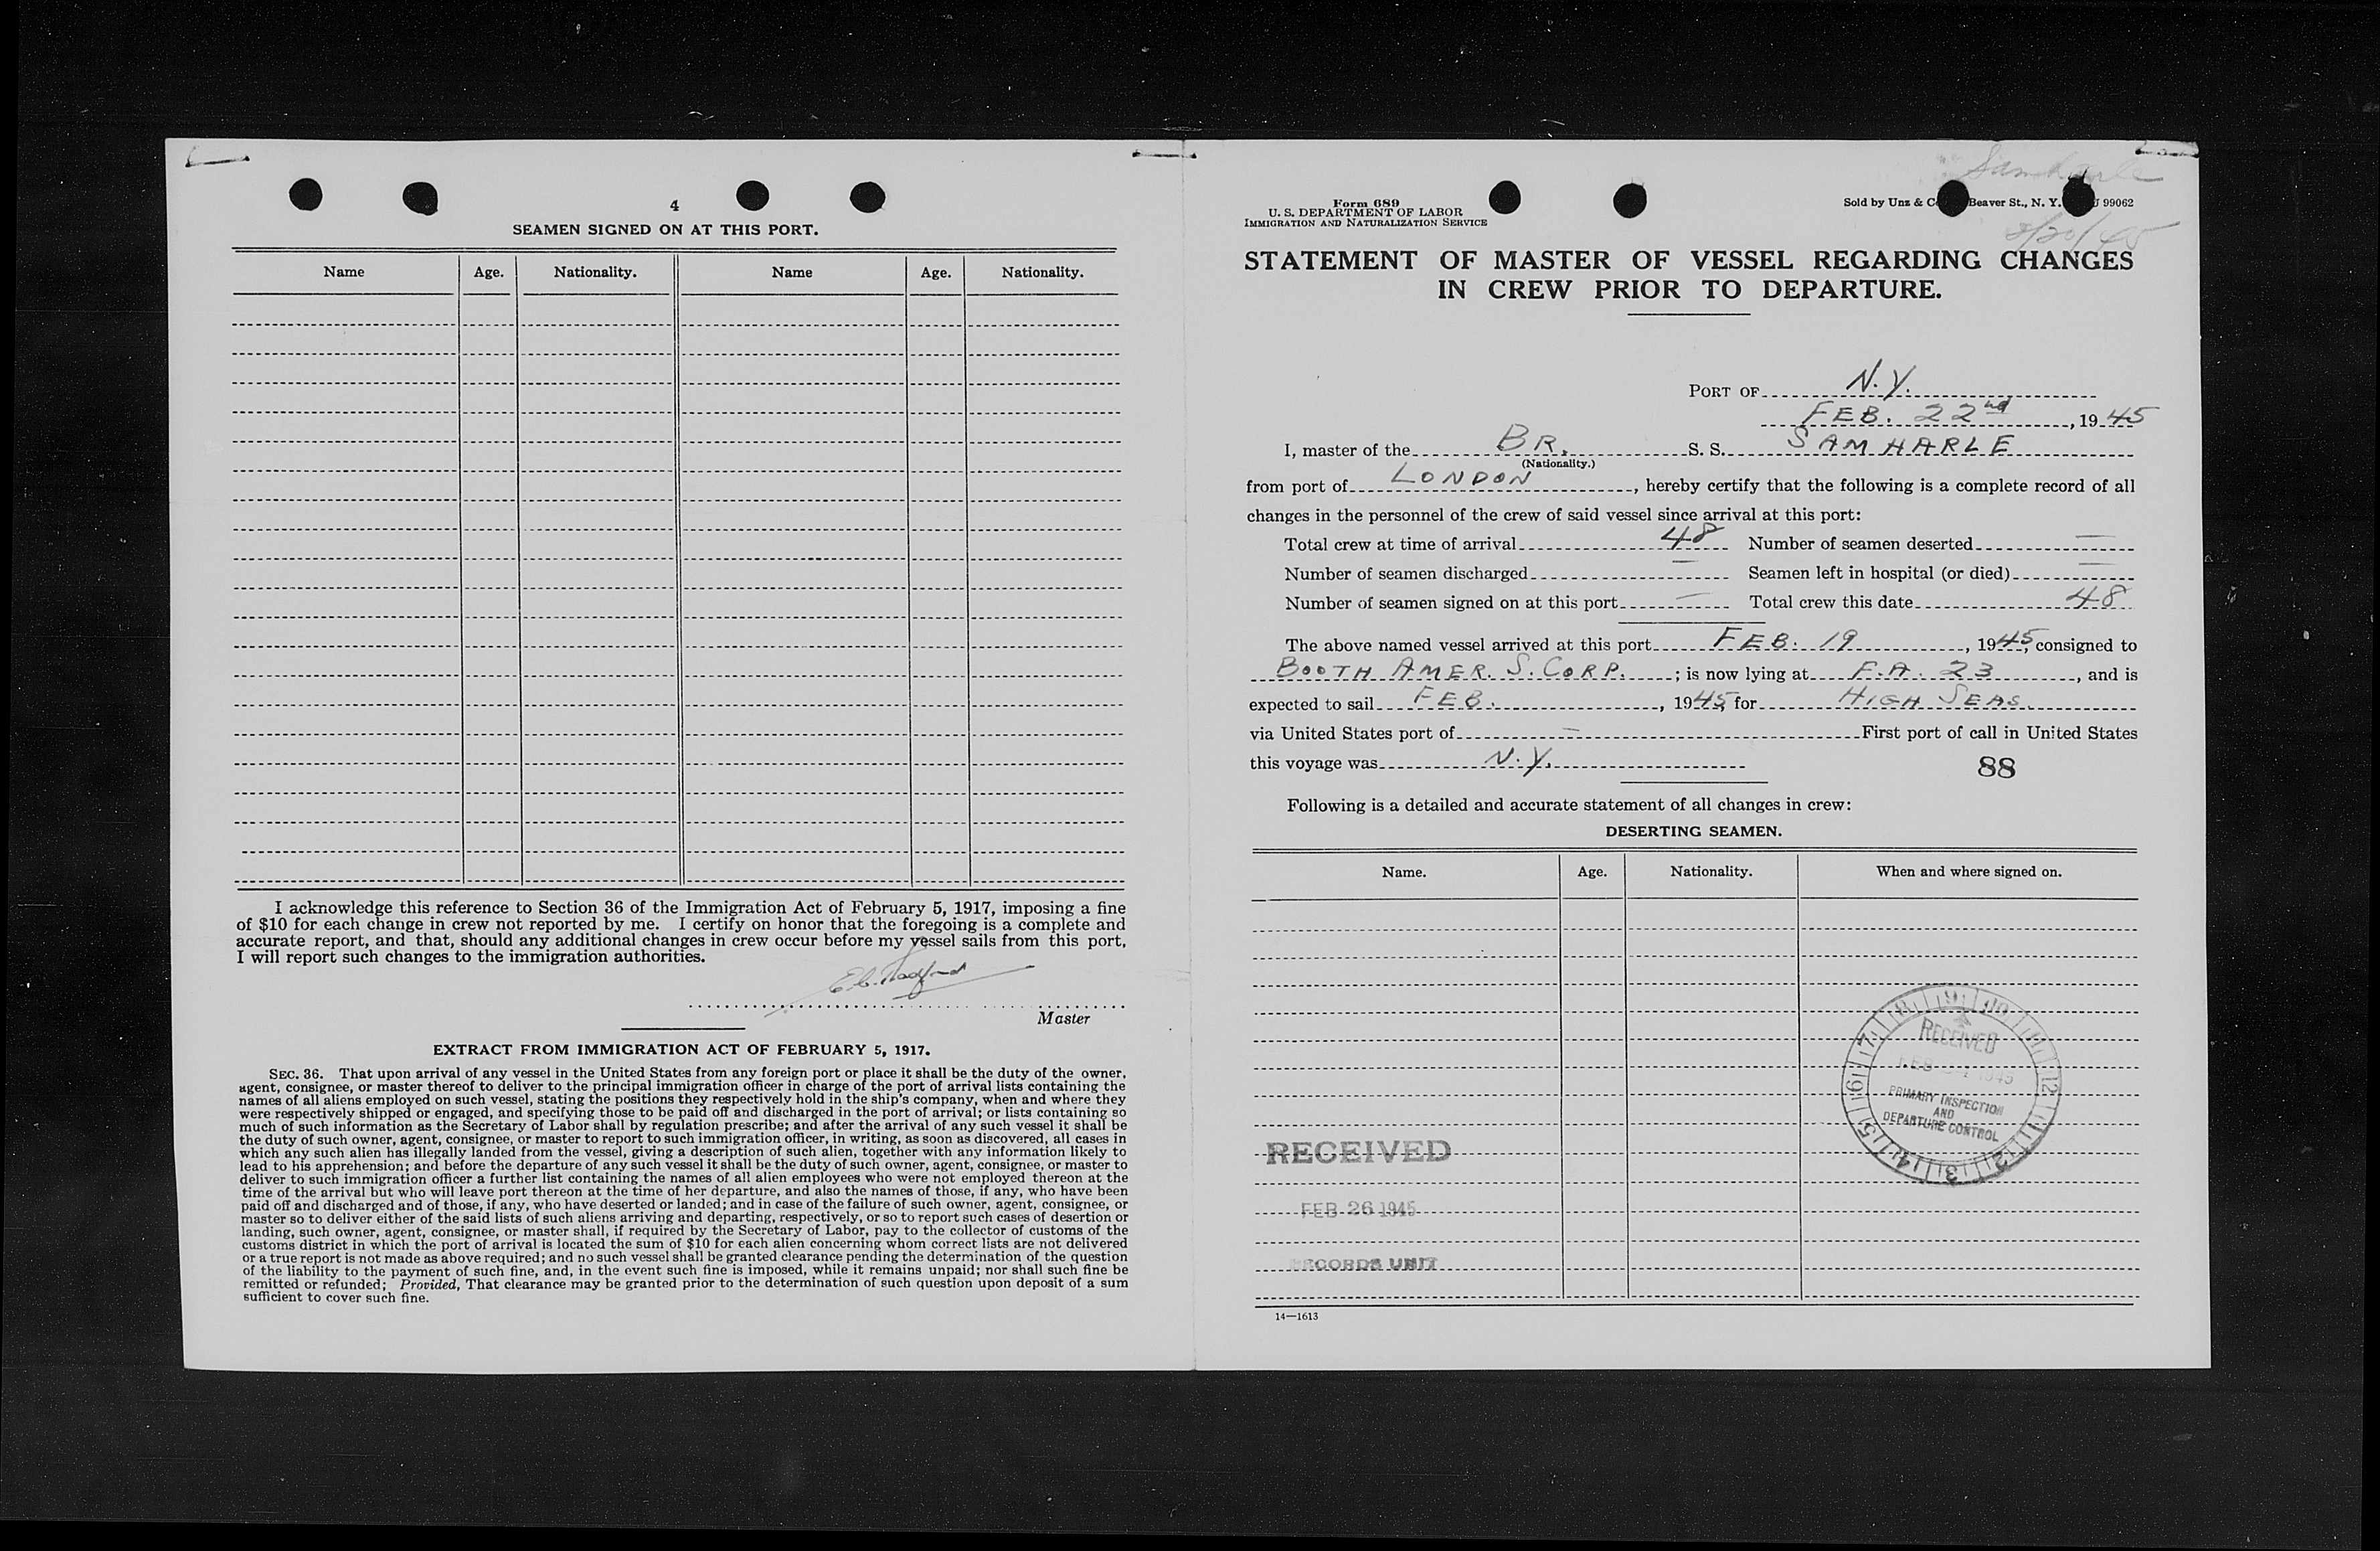 4
SEAMEN SIGNED ON AT THIS PORT.
Name Age. Nationality. Name Age. Nationality.
I acknowledge this reference to Section 36 of the Immigration Act of February 5, 1917, imposing a fine
of $10 for each change in crew not reported by me. I certify on honor that the foregoing is a complete and
accurate report, and that, should any additional changes in crew occur before my vessel sails from this port,
I will report such changes to the immigration authorities.
Master
EXTRACT FROM IMMIGRATION ACT OF FEBRUARY 5, 1917.
SEC. 36. That upon arrival of any vessel in the United States from any foreign port or place it shall be the duty of the owner,
agent, consignee, or master thereof to deliver to the principal immigration officer in charge of the port of arrival lists containing the
names of all aliens employed on such vessel, stating the positions they respectively hold in the ship's company, when and where they
were respectively shipped or engaged, and specifying those to be paid off and discharged in the port of arrival; or lists containing so
much of such information as the Secretary of Labor shall by regulation prescribe; and after the arrival of any such vessel it shall be
the duty of such owner, agent, consignee, or master to report to such immigration officer, in writing, as soon as discovered, all cases in
which any such alien has illegally landed from the vessel, giving a description of such alien, together with any information likely to
lead to his apprehension; and before the departure of any such vessel it shall be the duty of such owner, agent, consignee, or master to
deliver to such immigration officer a further list containing the names of all alien employees who were not employed thereon at the
time of the arrival but who will leave port thereon at the time of her departure, and also the names of those, if any, who have been
paid off and discharged and of those, if any, who have deserted or landed; and in case of the failure of such owner, agent, consignee, or
master so to deliver either of the said lists of such aliens arriving and departing, respectively, or so to report such cases of desertion or
landing, such owner, agent, consignee, or master shall, if required by the Secretary of Labor, pay to the collector of customs of the
customs district in which the port of arrival is located the sum of $10 for each alien concerning whom correct lists are not delivered
or a true report is not made as above required; and no such vessel shall be granted clearance pending the determination of the question
of the liability to the payment of such fine, and, in the event such fine is imposed, while it remains unpaid; nor shall such fine be
remitted or refunded; Provided, That clearance may be granted prior to the determination of such question upon deposit of a sum
sufficient to cover such fine.
Samharle
Form 689
U. S. DEPARTMENT OF LABOR
IMMIGRATION AND NATURALIZATION SERVICE
Sold by Unz & Beaver St., N. Y. 99062
STATEMENT OF MASTER OF VESSEL REGARDING CHANGES
IN CREW PRIOR TO DEPARTURE.
PORT OF N.Y.
FEB. 22nd, 1945
I, master of the BR. S. S. SAMHARLE
(Nationality.)
from port of LONDON, hereby certify that the following is a complete record of all
changes in the personnel of the crew of said vessel since arrival at this port:
Total crew at time of arrival 48 Number of seamen deserted —
Number of seamen discharged — Seamen left in hospital (or died) —
Number of seamen signed on at this port — Total crew this date 48
The above named vessel arrived at this port FEB. 19, 1945, consigned to
BOOTH AMER. S. CORP.; is now lying at F.A. 23, and is
expected to sail FEB., 1945, for HIGH SEAS.
via United States port of — First port of call in United States
this voyage was N.Y.
88
Following is a detailed and accurate statement of all changes in crew:
DESERTING SEAMEN.
Name. Age. Nationality. When and where signed on.
RECEIVED
PRIMARY INSPECTION
AND
DEPARTURE CONTROL
RECEIVED
FEB 26 1945
RECORDS UNIT
14—1613